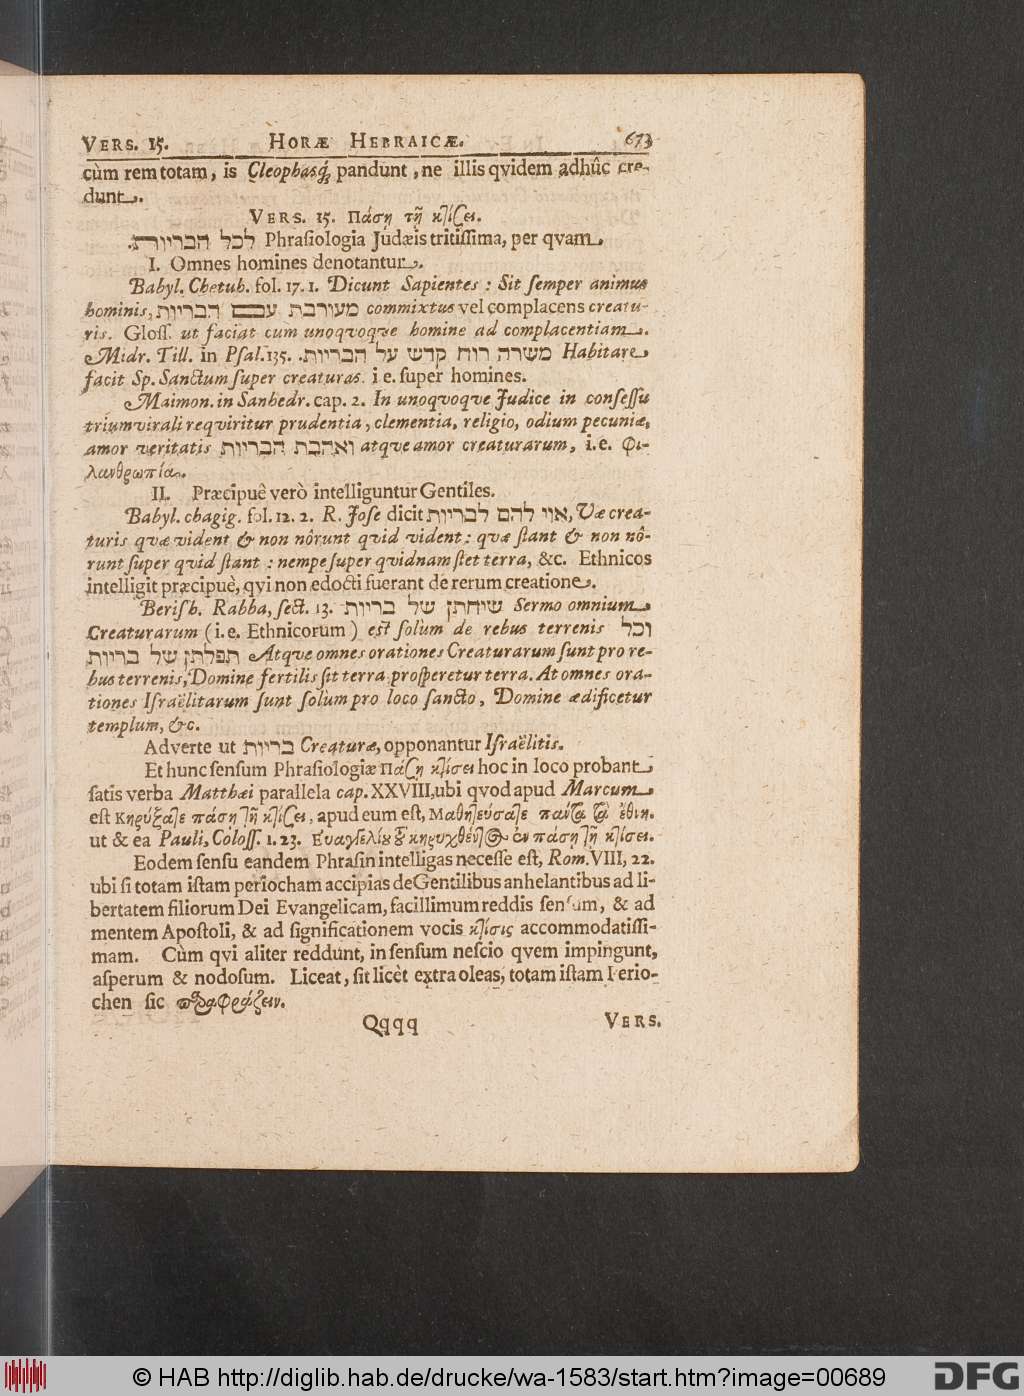 VERS. 15. HORÆ HEBRAICÆ. 673
cùm rem totam, is Cleophasq́; pandunt, ne illis qvidem adhûc cre-
dunt.
VERS. 15. Πάσῃ τῇ κτίσει.
לכל הבריורת. Phrasiologia Judæis tritissima, per qvam
I. Omnes homines denotantur.
Babyl. Chetub. fol. 17. 1. Dicunt Sapientes: Sit semper animus
hominis, מעורבת עם הבריות commixtus vel complacens creatu-
ris. Gloss. ut faciat cum unoqvoqve homine ad complacentiam.
Midr. Till. in Psal. 135. משרה רוח קדש על הבריות. Habitare
facit Sp. Sanctum super creaturas. i e. super homines.
Maimon. in Sanhedr. cap. 2. In unoqvoqve Judice in consessu
triumvirali reqviritur prudentia, clementia, religio, odium pecuniæ,
amor veritatis ואהבת הבריות atqve amor creaturarum, i. e. φι-
λανθρωπία.
II. Præcipuè verò intelliguntur Gentiles.
Babyl. chagig. fol. 12. 2. R. Jose dicit אוי להם לבריות, Væ crea-
turis qvæ vident & non nôrunt qvid vident: qvæ stant & non nô-
runt super qvid stant: nempe super qvidnam stet terra, &c. Ethnicos
intelligit præcipuè, qvi non edocti fuerant de rerum creatione.
Berish. Rabba, sect. 13. שיחתן של בריות Sermo omnium
Creaturarum (i. e. Ethnicorum) est solùm de rebus terrenis וכל
תפלתן של בריות Atqve omnes orationes Creaturarum sunt pro re-
bus terrenis, Domine fertilis sit terra prosperetur terra. At omnes ora-
tiones Israëlitarum sunt solùm pro loco sancto, Domine ædificetur
templum, &c.
Adverte ut בריות Creaturæ, opponantur Israëlitis.
Et hunc sensum Phrasiologiæ Πάσῃ κτίσει hoc in loco probant
satis verba Matthæi parallela cap. XXVIII, ubi qvod apud Marcum
est Κηρύξατε πάσῃ τῇ κτίσει, apud eum est, Μαθητεύσατε πάντα τὰ ἔθνη.
ut & ea Pauli, Coloss. 1. 23. Εὐαγγελίου τοῦ κηρυχθέντος ἐν πάσῃ τῇ κτίσει.
Eodem sensu eandem Phrasin intelligas necesse est, Rom. VIII, 22.
ubi si totam istam periocham accipias de Gentilibus anhelantibus ad li-
bertatem filiorum Dei Evangelicam, facillimum reddis sensum, & ad
mentem Apostoli, & ad significationem vocis κτίσις accommodatissi-
mam. Cùm qvi aliter reddunt, in sensum nescio qvem impingunt,
asperum & nodosum. Liceat, sit licèt extra oleas, totam istam Perio-
chen sic παραφράζειν.
Qqqq VERS.
© HAB http://diglib.hab.de/drucke/wa-1583/start.htm?image=00689
DFG